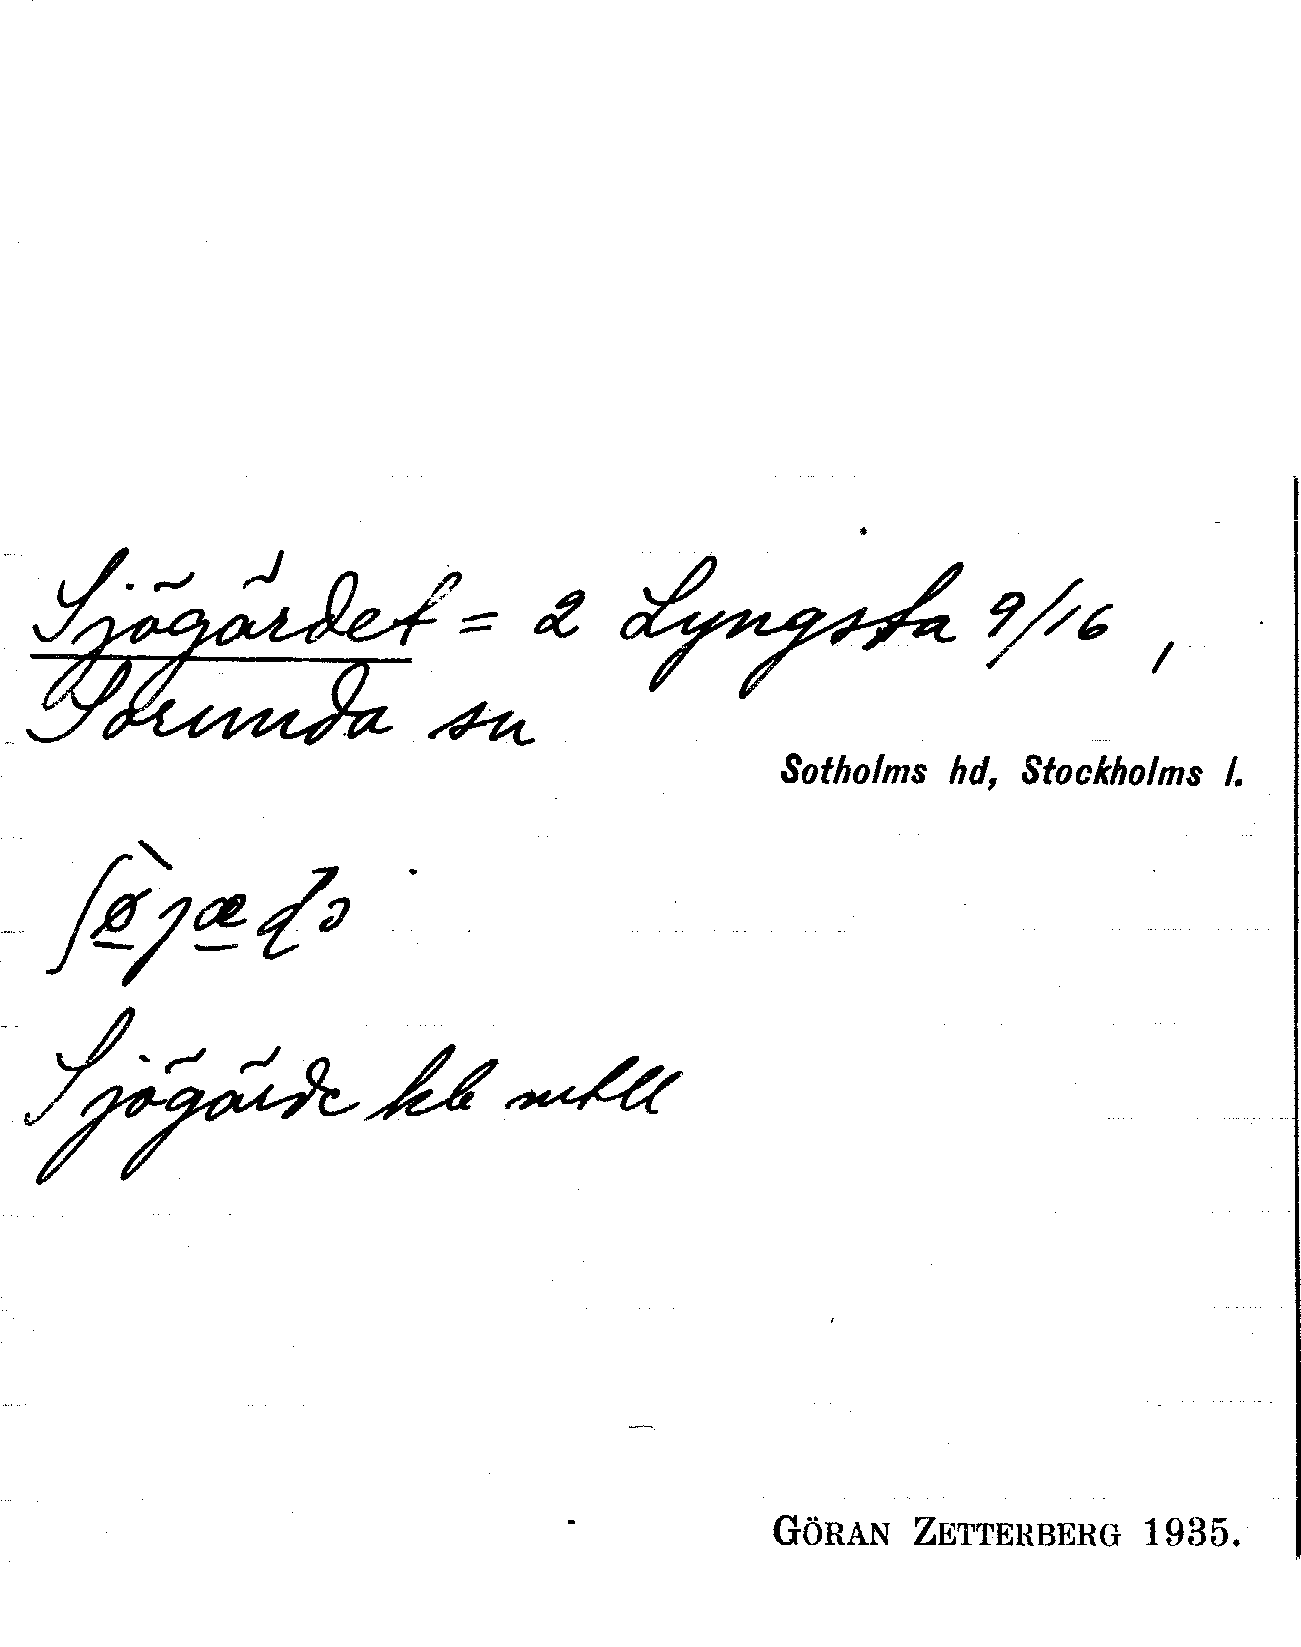 Sjögärdet = 2 Lyngsta 9/16,
Sorunda sn
Sotholms hd, Stockholms l.
ʃø̱̀jæ̱ɖə
Sjögärde kb
GÖRAN ZETTERBERG 1935.